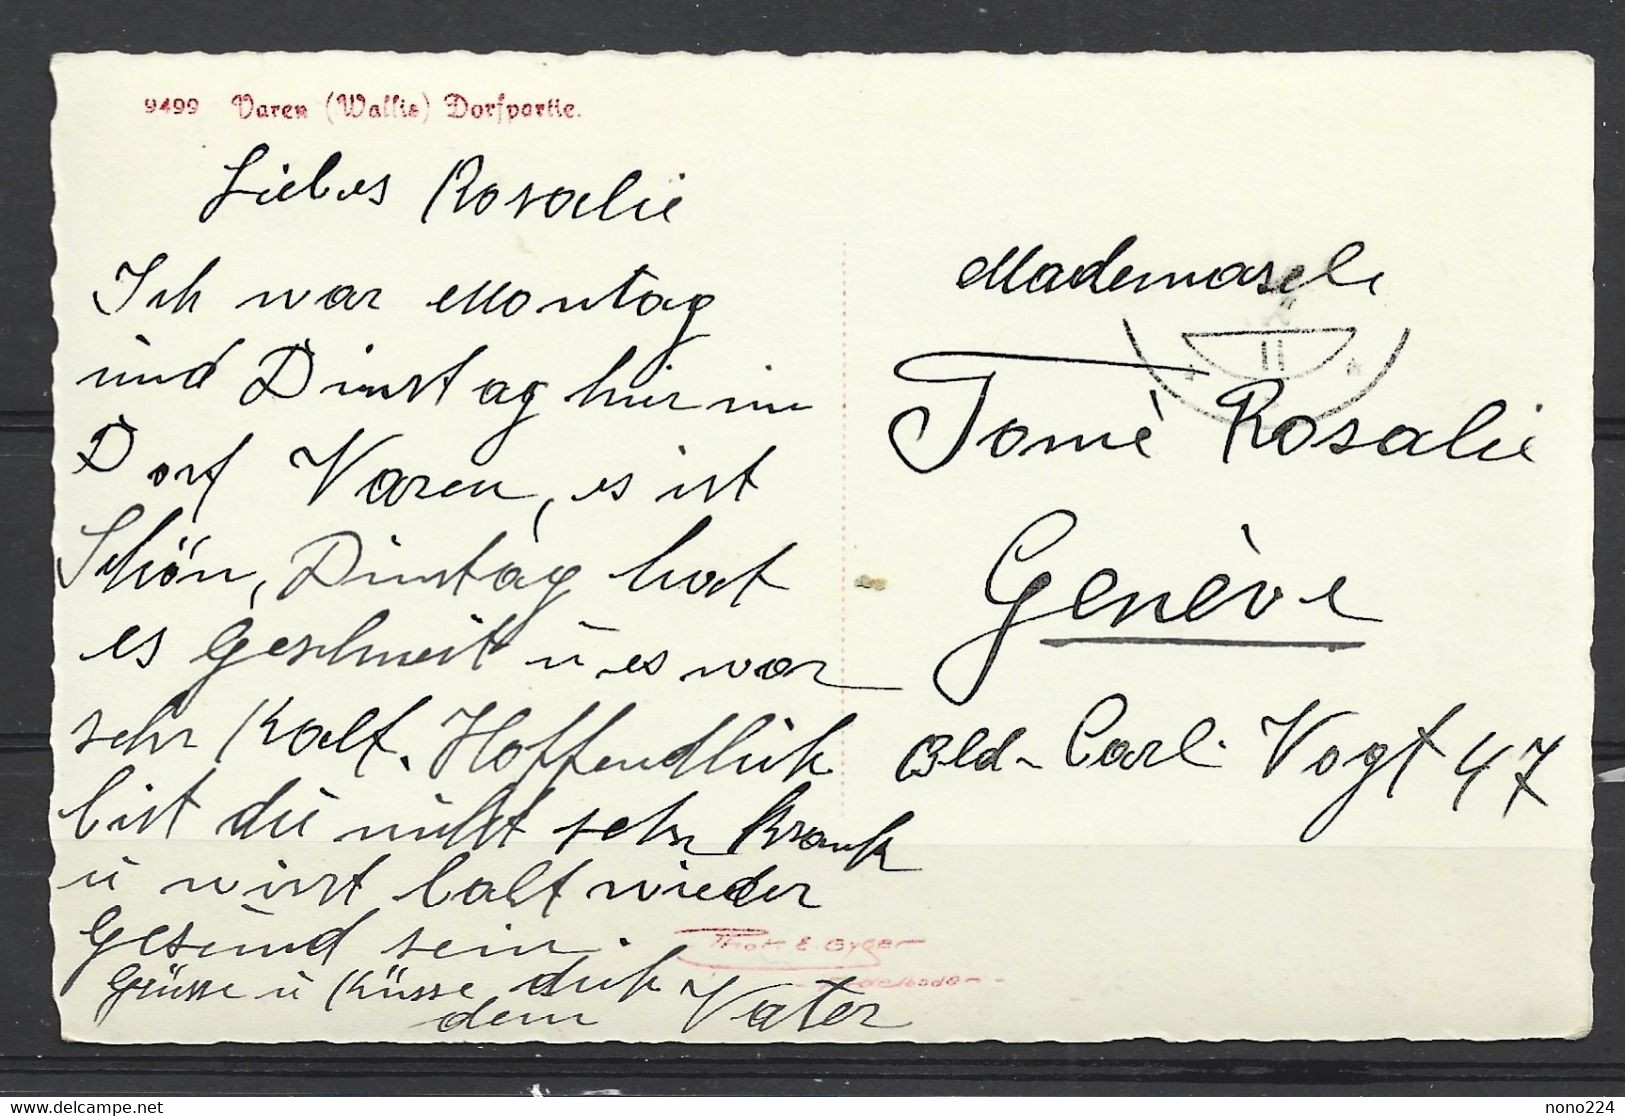 9499 Varen (Wallis) Dorfpartie.
Liebes Rosalie
Ich war Montag
und Dinstag hier im
Dorf Varen, es ist
Schön, Dinstag hat
es Geschneit u es war
sehr Kalt. Hoffendlich
bist du nicht sehr Krank
u wirst balt wieder
Gesund sein.
Grüsse u Küsse dich
dein Vater
Phot. E. Gyger
Adelboden
Mademosele
11
Tomè Rosalie
Genève
Bld- Carl. Vogt 47
delcampe.net
nono224